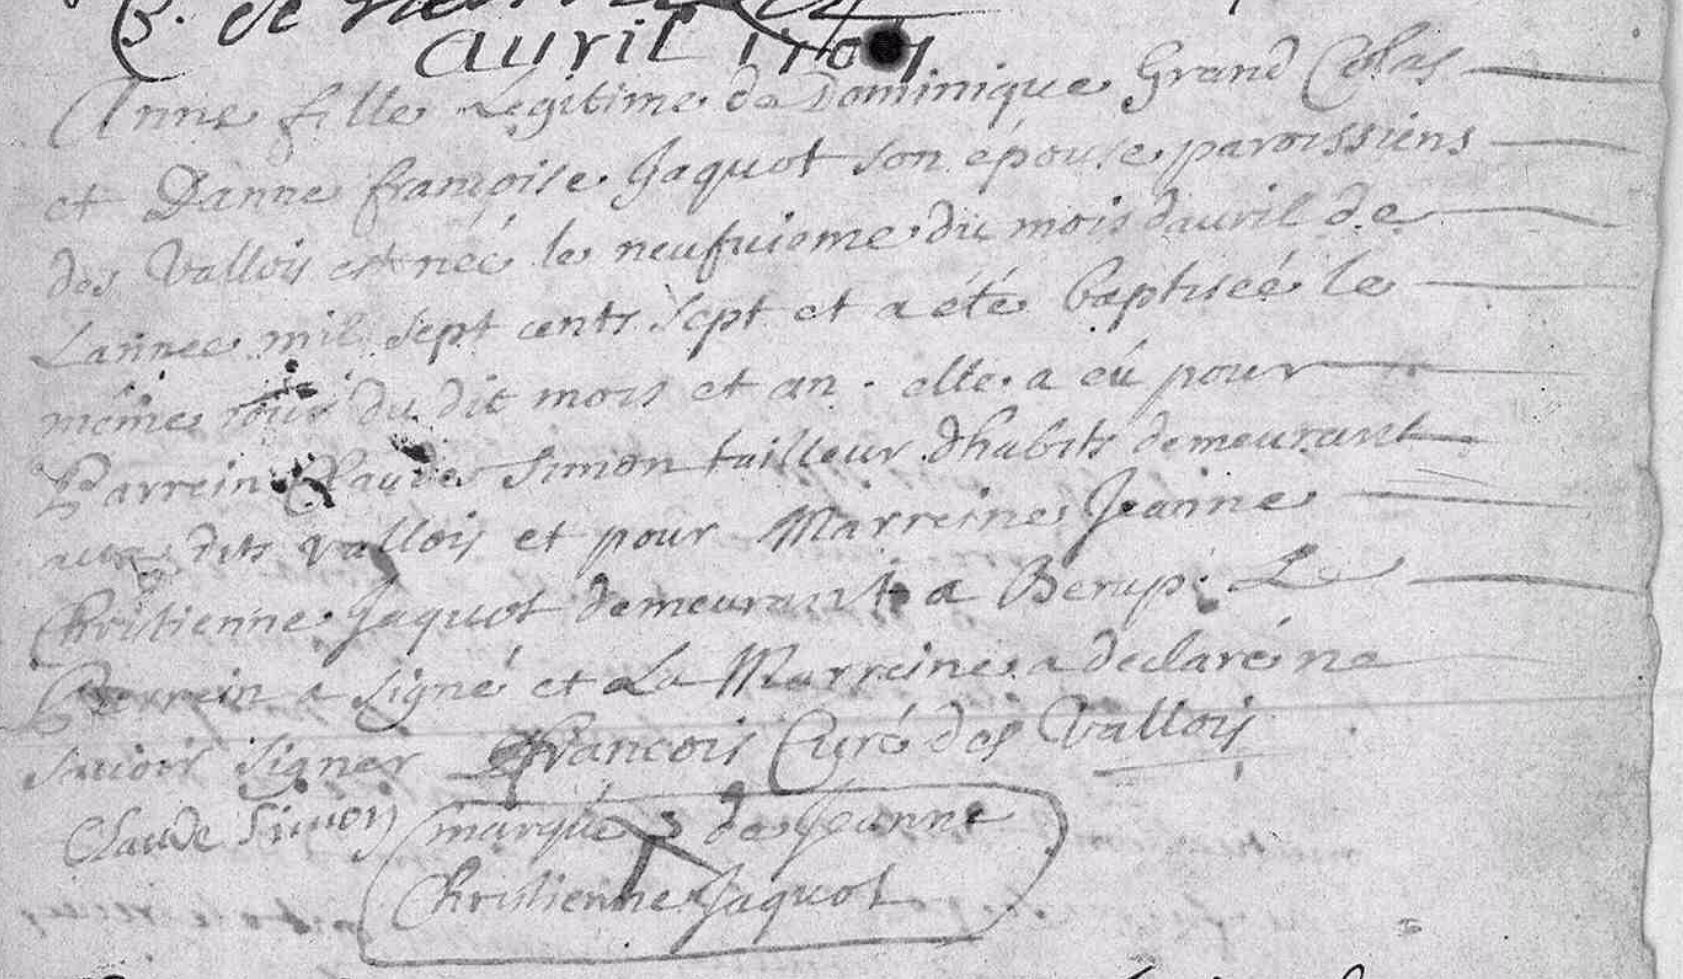 avril 1707
Anne fille Legitime de Dominique Grand Colas
et Danne françoise Jaquot son épouse paroissiens
des Vallois est neé le neufuieme du mois dauril de
Lannee mil sept cents sept et a été baptiseé le
même iour du dit mois et an . elle a eú pour
Parrein Claude Simon tailleur dhabits demeurant
aux dits Vallois et pour Marreine Jeanne
Chritienne Jaquot demeurant a Le
Parrein a signé et La Marreine a declaré ne
sauoir signer francois Curé des Vallois
Claude Simon marque de Jeanne
Chritienne Jaquot